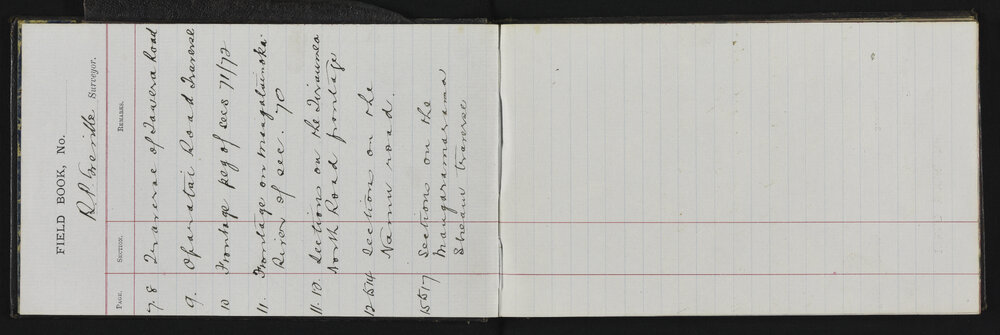 FIELD BOOK, No.
R P Greville Surveyor.
PAGE. SECTION. REMARKS.
7.8 Traverse of Tawera Road
9. Oparatai Road Traverse
10 Frontage peg of Secs 71/72
11. Frontage on Mangatainoka
River of Sec. 70
11.12 Section on the Tiraumea
North Road frontage
12 to 14 Section on the
Namu road.
15 to 17 Section on the
Mangaramarama
Stream traverse